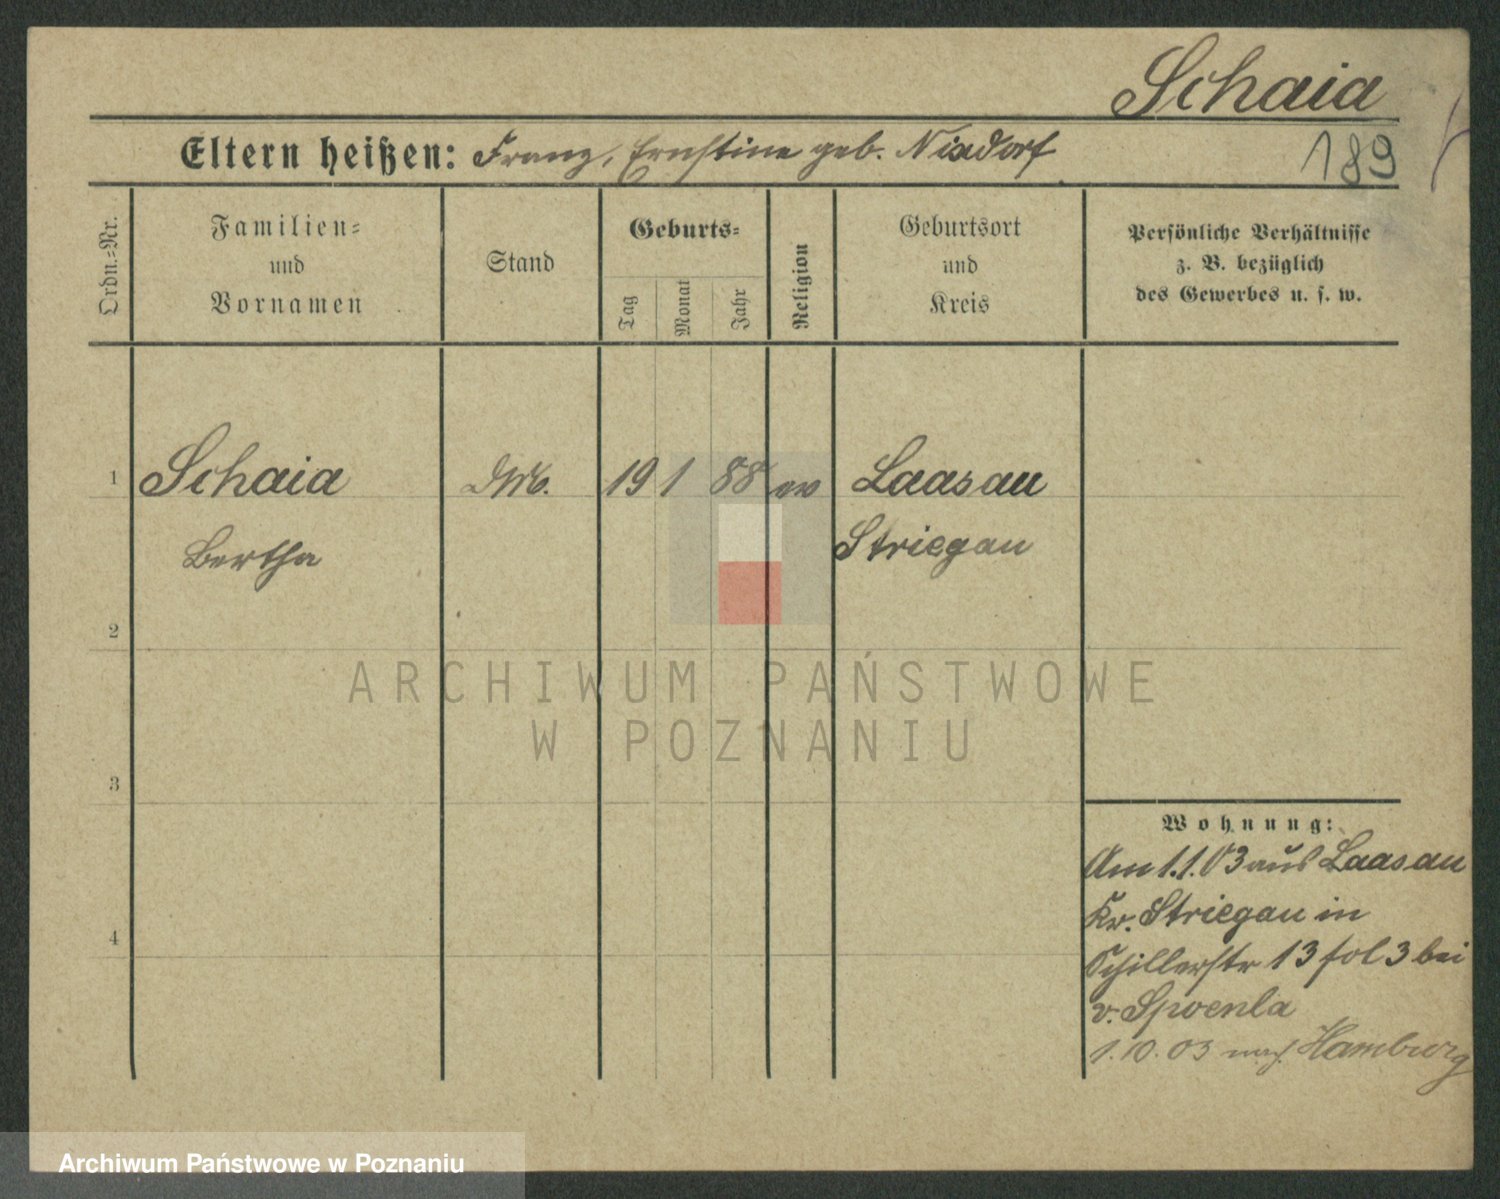 Schaia
189
Eltern heißen: Franz, Ernstine geb. Nixdorf
Ordn.=Nr.
Familien=
und
Vornamen
Stand
Geburts=
Tag
Monat
Jahr
Religion
Geburtsort
und
Kreis
Persönliche Verhältnisse
z. B. bezüglich
des Gewerbes u. s. w.
1
Schaia
Bertha
19 1 88 ev
Laasan
Striegau
2
3
4
Wohnung:
Am 1.1.03 aus Laasan
Kr. Striegau in
Schillerstr 13 fol 3 bei
v. Spoenla
1.10.03 nach Hamburg
ARCHIWUM PAŃSTWOWE
W POZNANIU
Archiwum Państwowe w Poznaniu